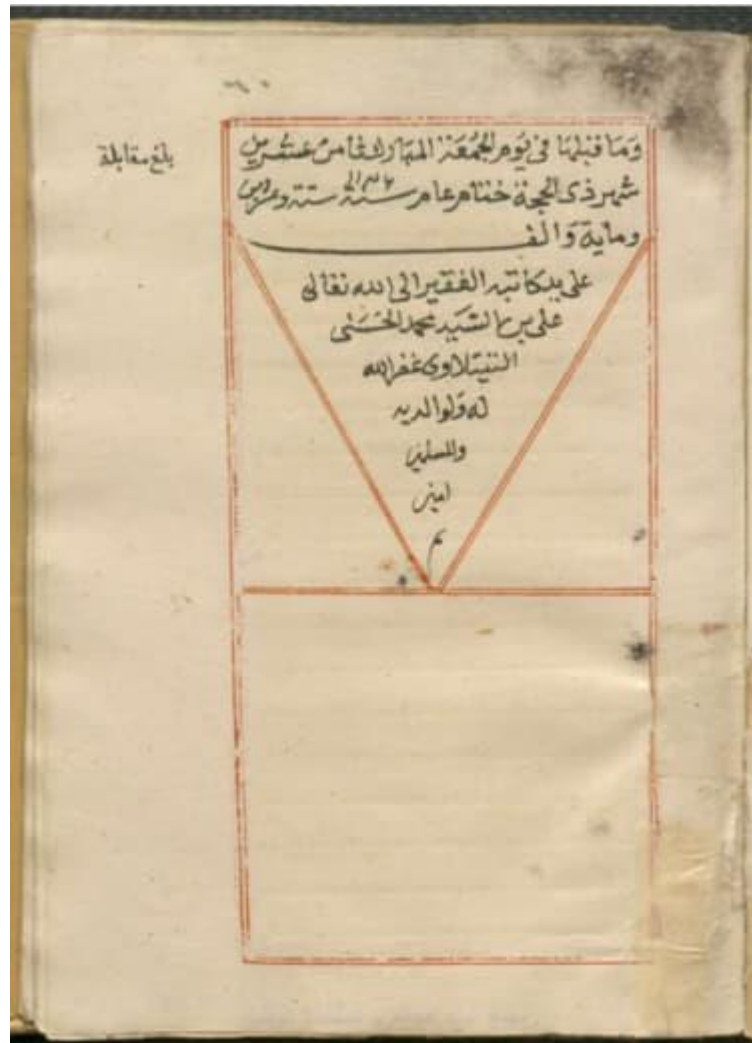 بلغ مقابلة
وما قبلها في يوم الجمعة المبارك ثامن عشرين
شهر ذى الحجة ختام عام سنة ستة وعشرين
وماية والف
على يد كاتبه الفقير الى الله تعالى
على بن السيد محمد الحسنى
غفر الله
له ولوالديه
وللمسلمين
امين
م